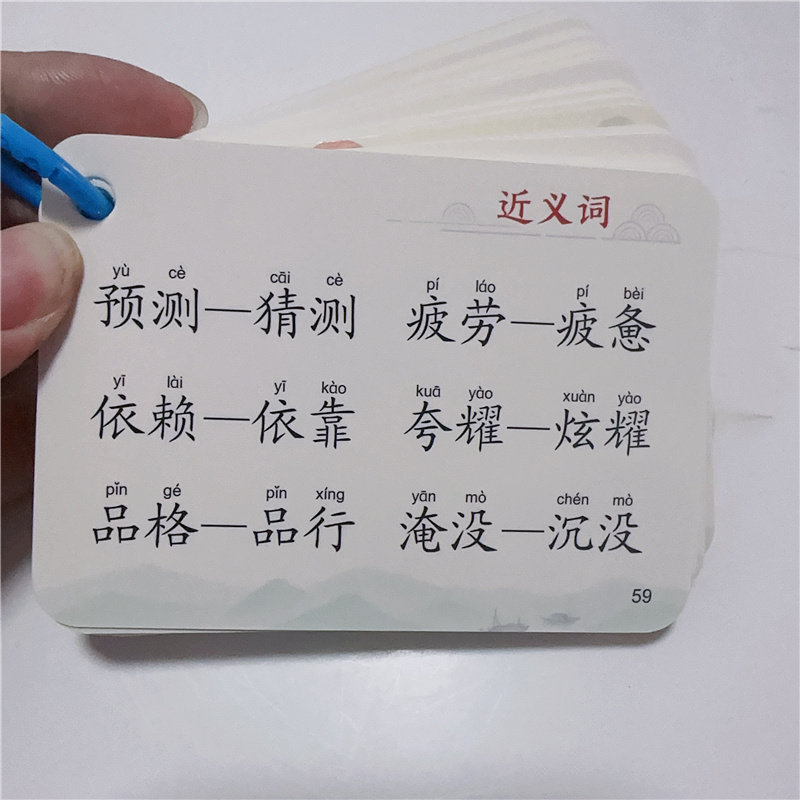 近义词
yù cè cāi cè pí láo pí bèi
预测—猜测 疲劳—疲惫
yī lài yī kào kuā yào xuàn yào
依赖—依靠 夸耀—炫耀
pǐn gé pǐn xíng yān mò chén mò
品格—品行 淹没—沉没
59